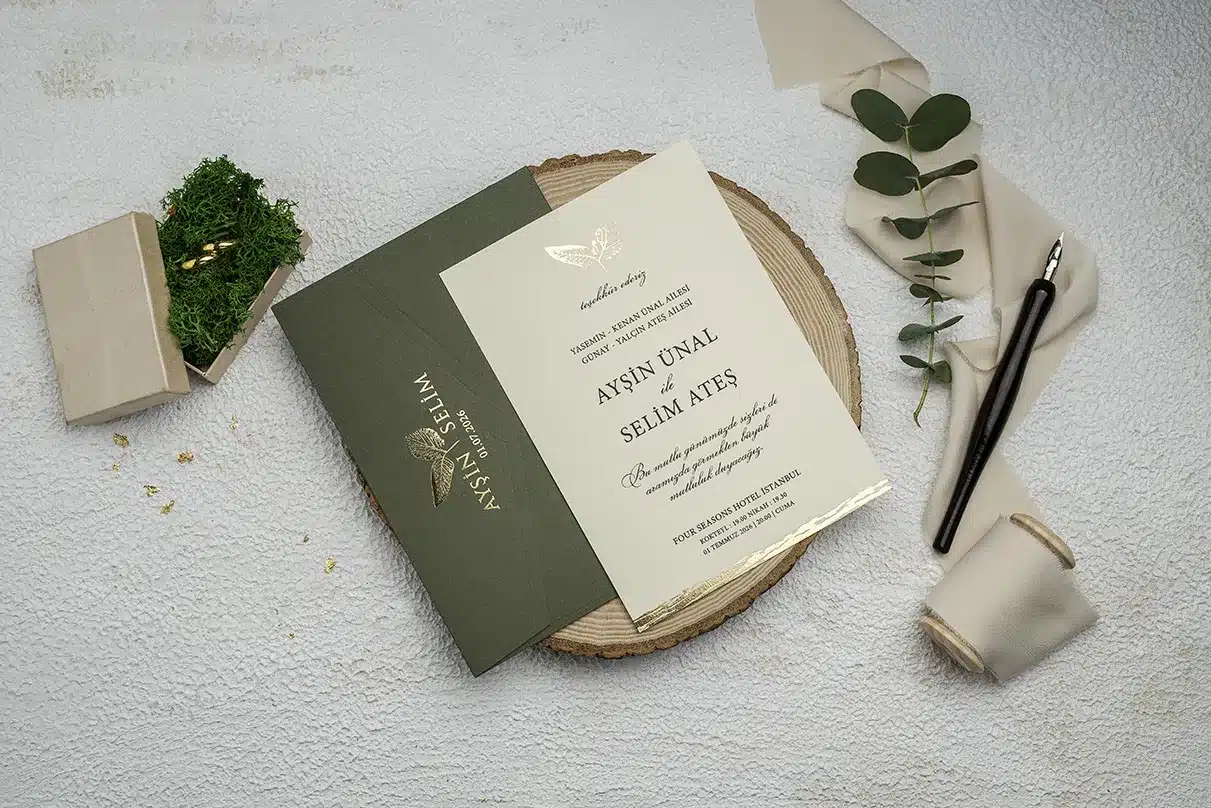 teşekkür ederiz
YASEMIN - KENAN ÜNAL AILESI
GÜNAY - YALÇIN ATEŞ AILESI
AYŞİN ÜNAL
ile
SELİM ATEŞ
Bu mutlu günümüzde sizleri de
aramızda görmekten büyük
mutluluk duyacağız.
FOUR SEASONS HOTEL ISTANBUL
KOKTEYL : 19.00 NİKAH : 19.30
01 TEMMUZ 2026 | 20:00 | CUMA
AYŞİN SELİM
01.07.2026